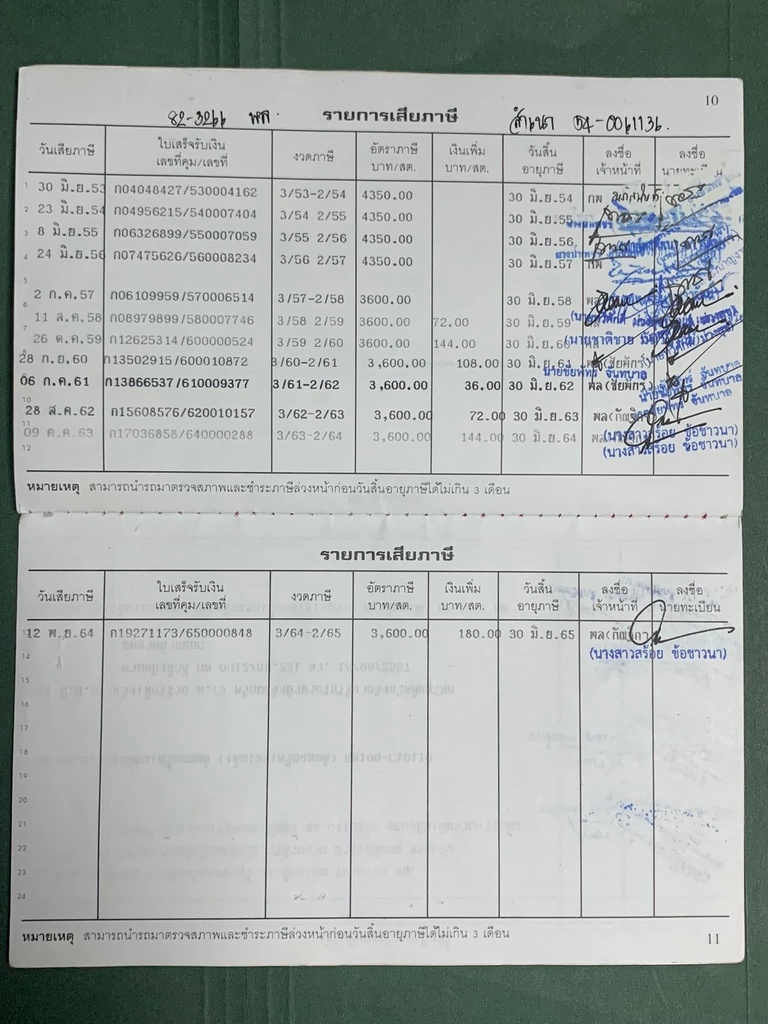 10
82-3266 พล. รายการเสียภาษี สำเนา 54-0061136.
วันเสียภาษี ใบเสร็จรับเงิน เลขที่คุม/เลขที่ งวดภาษี อัตราภาษี บาท/สต. เงินเพิ่ม บาท/สต. วันสิ้น อายุภาษี ลงชื่อ เจ้าหน้าที่ ลงชื่อ
1 30 มิ.ย.53 ก04048427/530004162 3/53-2/54 4350.00 30 มิ.ย.54 กพ
2 23 มิ.ย.54 ก04956215/540007404 3/54 2/55 4350.00 30 มิ.ย.55
3 8 มิ.ย.55 ก06326899/550007059 3/55 2/56 4350.00 30 มิ.ย.56
4 24 มิ.ย.56 ก07475626/560008234 3/56 2/57 4350.00 30 มิ.ย.57 กพ
5
6 2 ก.ค.57 ก06109959/570006514 3/57-2/58 3600.00 30 มิ.ย.58 พล
7 11 ส.ค.58 ก08979899/580007746 3/58 2/59 3600.00 72.00 30 มิ.ย.59
26 ต.ค.59 ก12625314/600000524 3/59 2/60 3600.00 144.00 30 มิ.ย.60
28 ก.ย.60 ก13502915/600010872 3/60-2/61 3,600.00 108.00 30 มิ.ย.61 (ชัยพักร)
นายชัยพักร จันทบาล
06 ก.ค.61 ก13866537/610009377 3/61-2/62 3,600.00 36.00 30 มิ.ย.62 พล(ชัยพักร)
10
28 ส.ค.62 ก15608576/620010157 3/62-2/63 3,600.00 72.00 30 มิ.ย.63
11
09 ต.ค.63 ก17036858/640000288 3/63-2/64 3,600.00 144.00 30 มิ.ย.64
(นางสาวสร้อย ข้อชาวนา)
12
(นางสาวสร้อย ข้อชาวนา)
หมายเหตุ สามารถนำรถมาตรวจสภาพและชำระภาษีล่วงหน้าก่อนวันสิ้นอายุภาษีได้ไม่เกิน 3 เดือน
รายการเสียภาษี
วันเสียภาษี ใบเสร็จรับเงิน เลขที่คุม/เลขที่ งวดภาษี อัตราภาษี บาท/สต. เงินเพิ่ม บาท/สต. วันสิ้น อายุภาษี ลงชื่อ เจ้าหน้าที่ ลงชื่อ นายทะเบียน
12 พ.ย.64 ก19271173/650000848 3/64-2/65 3,600.00 180.00 30 มิ.ย.65
(นางสาวสร้อย ข้อชาวนา)
14
15
16
17
18
19
20
21
22
23
24
หมายเหตุ สามารถนำรถมาตรวจสภาพและชำระภาษีล่วงหน้าก่อนวันสิ้นอายุภาษีได้ไม่เกิน 3 เดือน
11